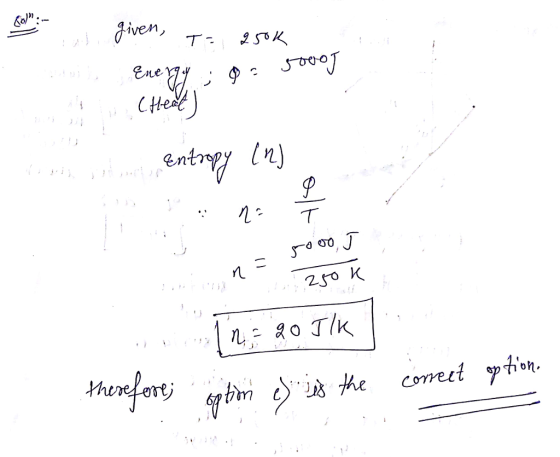 Solⁿ:-
given, T = 250K
Energy ; Q = 5000J
(Heat)
Entropy (η)
∵ η = Q/T
η = 5000 J / 250 K
η = 20 J/K
therefore; option c) is the correct option.